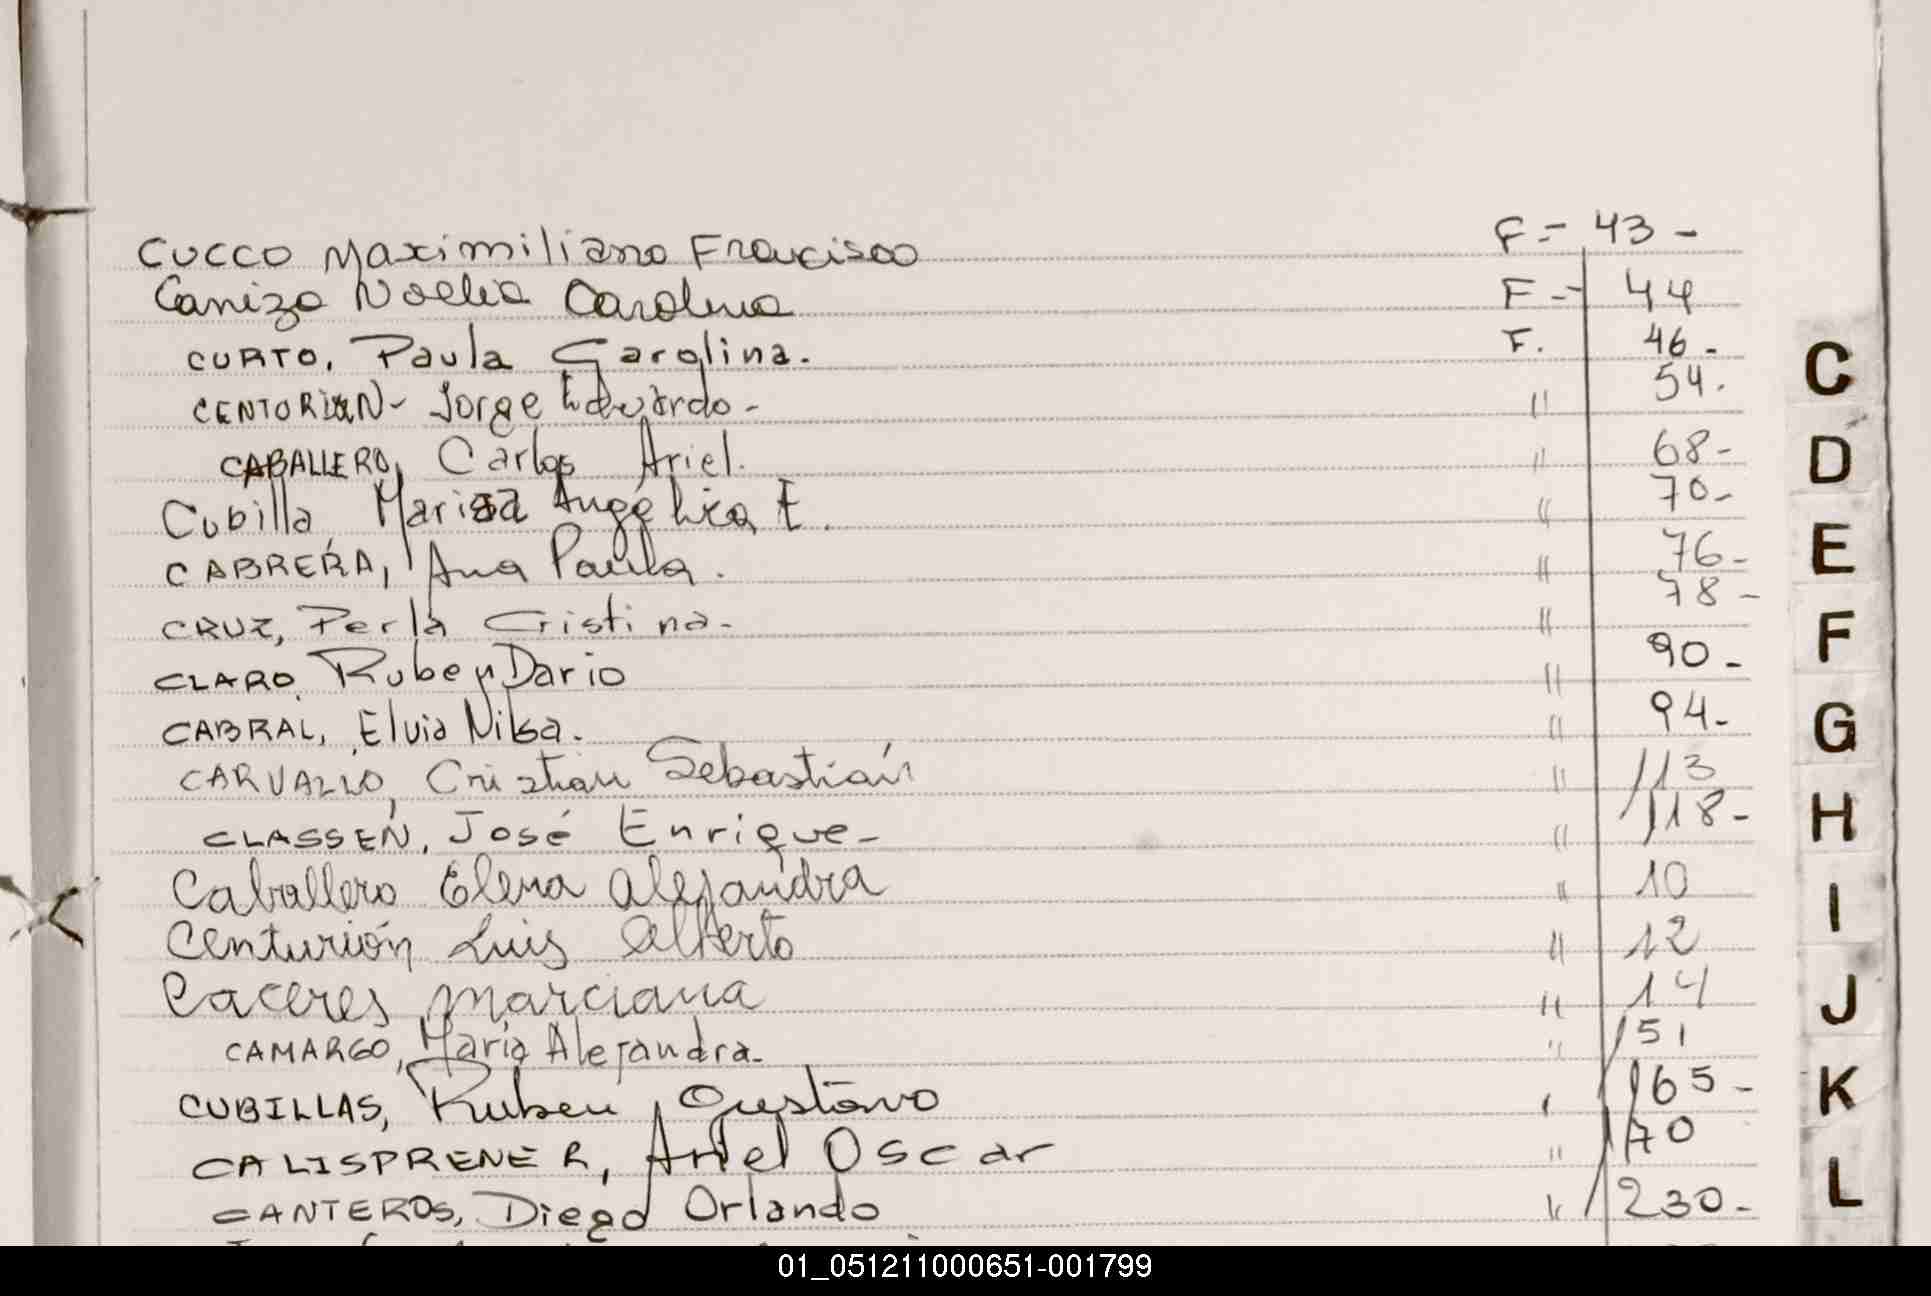 CUCCO Maximiliano Francisco F= 43-
Canizo Noelia Carolina F= 44
CURTO, Paula Carolina. F. 46-
CENTORIAN- Jorge Eduardo- " 54.
CABALLERO, Carlos Ariel. " 68-
Cubilla, Marisa Angélica E. " 70-
CABRERA, Ana Paula. " 76-
CRUZ, Perla Cristina- " 78-
CLARO, Ruben Dario " 90-
CABRAL, Elvia Nilsa. " 94-
CARVALLO, Cristian Sebastián " 113
CLASSEN, José Enrique- " 118-
Caballero Elena Alejandra " 10
Centurión Luis Alberto " 12
Caceres Marciana " 14
CAMARGO, María Alejandra- " 151
CUBILLAS, Ruben Gustavo " 165-
CALISPRENER, Ariel Oscar " 170
CANTEROS, Diego Orlando " 230-
C
D
E
F
G
H
I
J
K
L
01_051211000651-001799